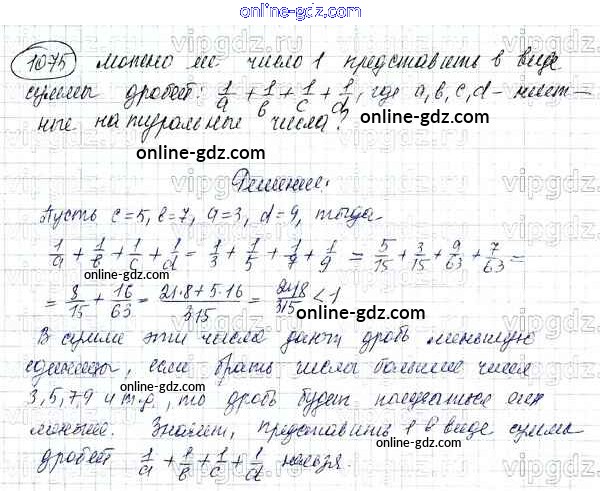 online-gdz.com
1075 Можно ли число 1 представить в виде
суммы дробей: 1/a + 1/b + 1/c + 1/d, где a, b, c, d - нечет-
ные натуральные числа?
online-gdz.com
online-gdz.com
Решение.
Пусть c=5, b=7, a=3, d=9, тогда
online-gdz.com
1/a + 1/b + 1/c + 1/d = 1/3 + 1/5 + 1/7 + 1/9 = 5/15 + 3/15 + 9/63 + 7/63 =
online-gdz.com
= 8/15 + 16/63 = 21·8+5·16/315 = 248/315 < 1
online-gdz.com
В сумме эти числа дают дробь меньшую
единицы, если брать числа больше чисел
online-gdz.com
3, 5, 7, 9 и т.д., то дробь будет получаться ещё
меньше. Значит, представить 1 в виде суммы
online-gdz.com
дробей 1/a + 1/b + 1/c + 1/d нельзя.
online-gdz.com